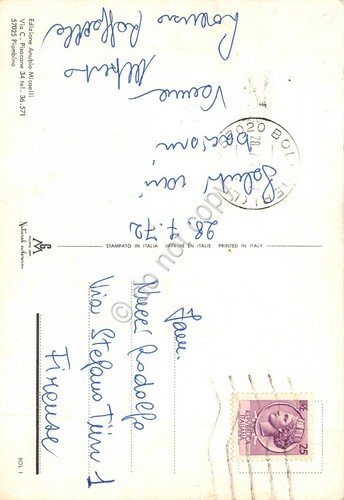 28.7.72
Saluti cari
bacioni
Vanna
Alberto
Lorenzo
Raffaella
Edizione Anubio Miaselli
Via C. Pisacane 34 tel. 36.571
57025 Piombino
STAMPATO IN ITALIA IMPRIMÉ EN ITALIE PRINTED IN ITALY
Fam.
Nucci Rodolfo
Via Stefano Türr 1
Firenze
25
BOL 1
do not copy